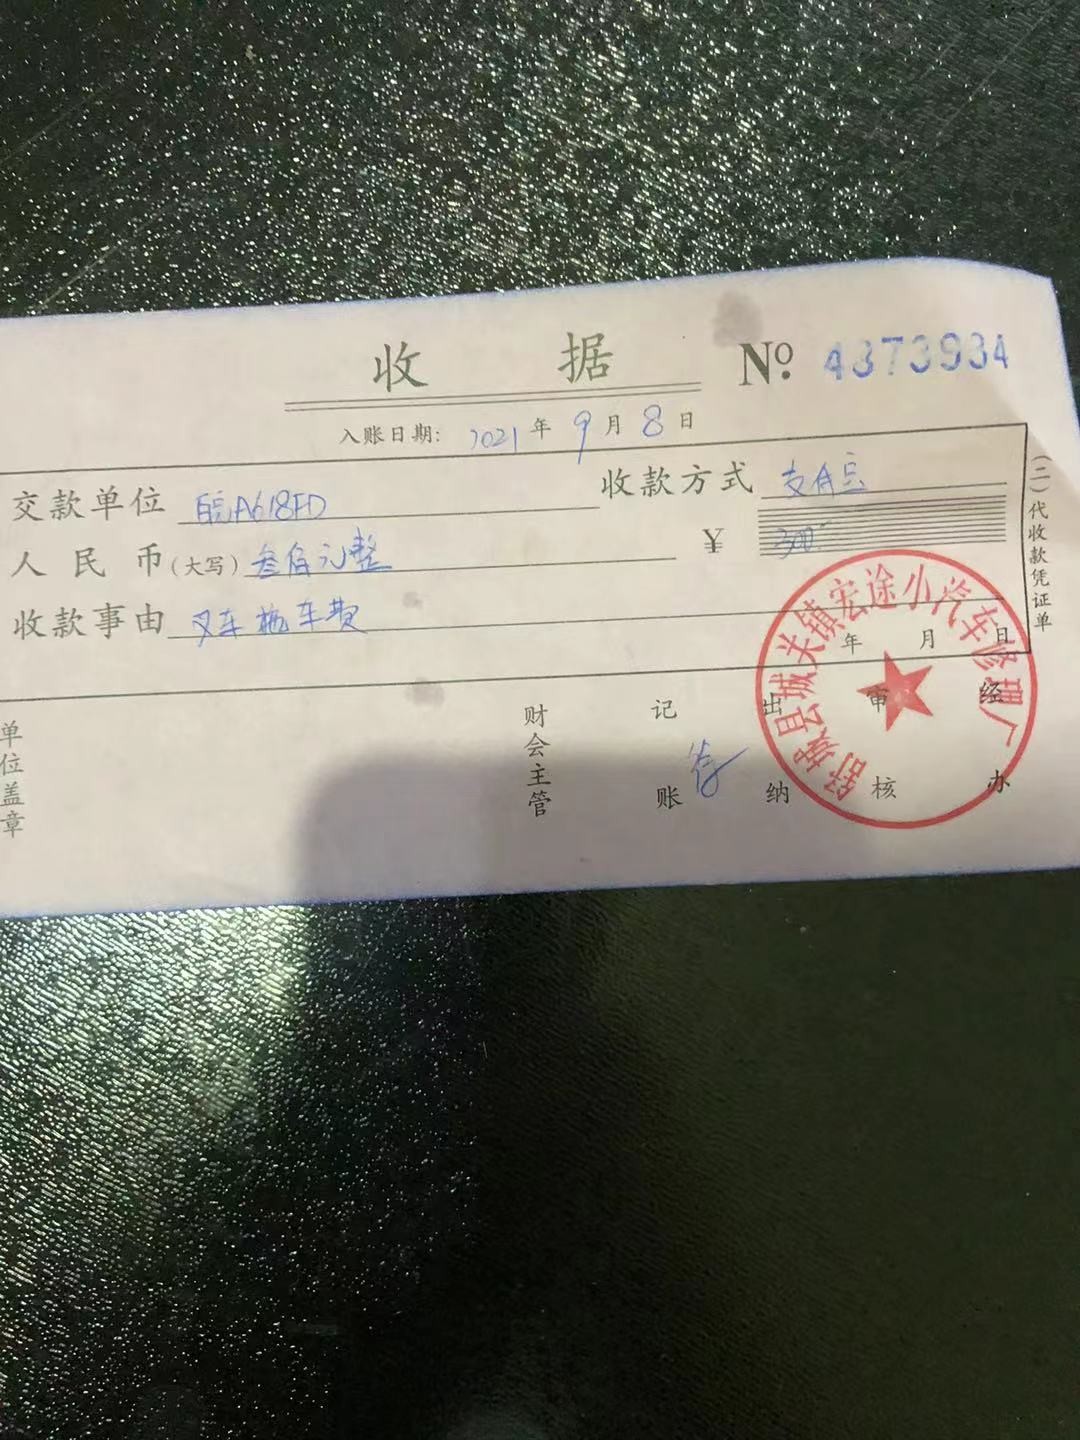 收 据 № 4373934
入账日期: 2021 年 9 月 8 日
交款单位 皖A618FD 收款方式 支付宝
人民币(大写) 叁佰元整 ¥ 300
收款事由 叉车拖车费
年 月 日
(二)代收款凭证单
单位盖章 财会主管 记账 出纳 审核 经办
舒城县城关镇宏途小汽车修理厂